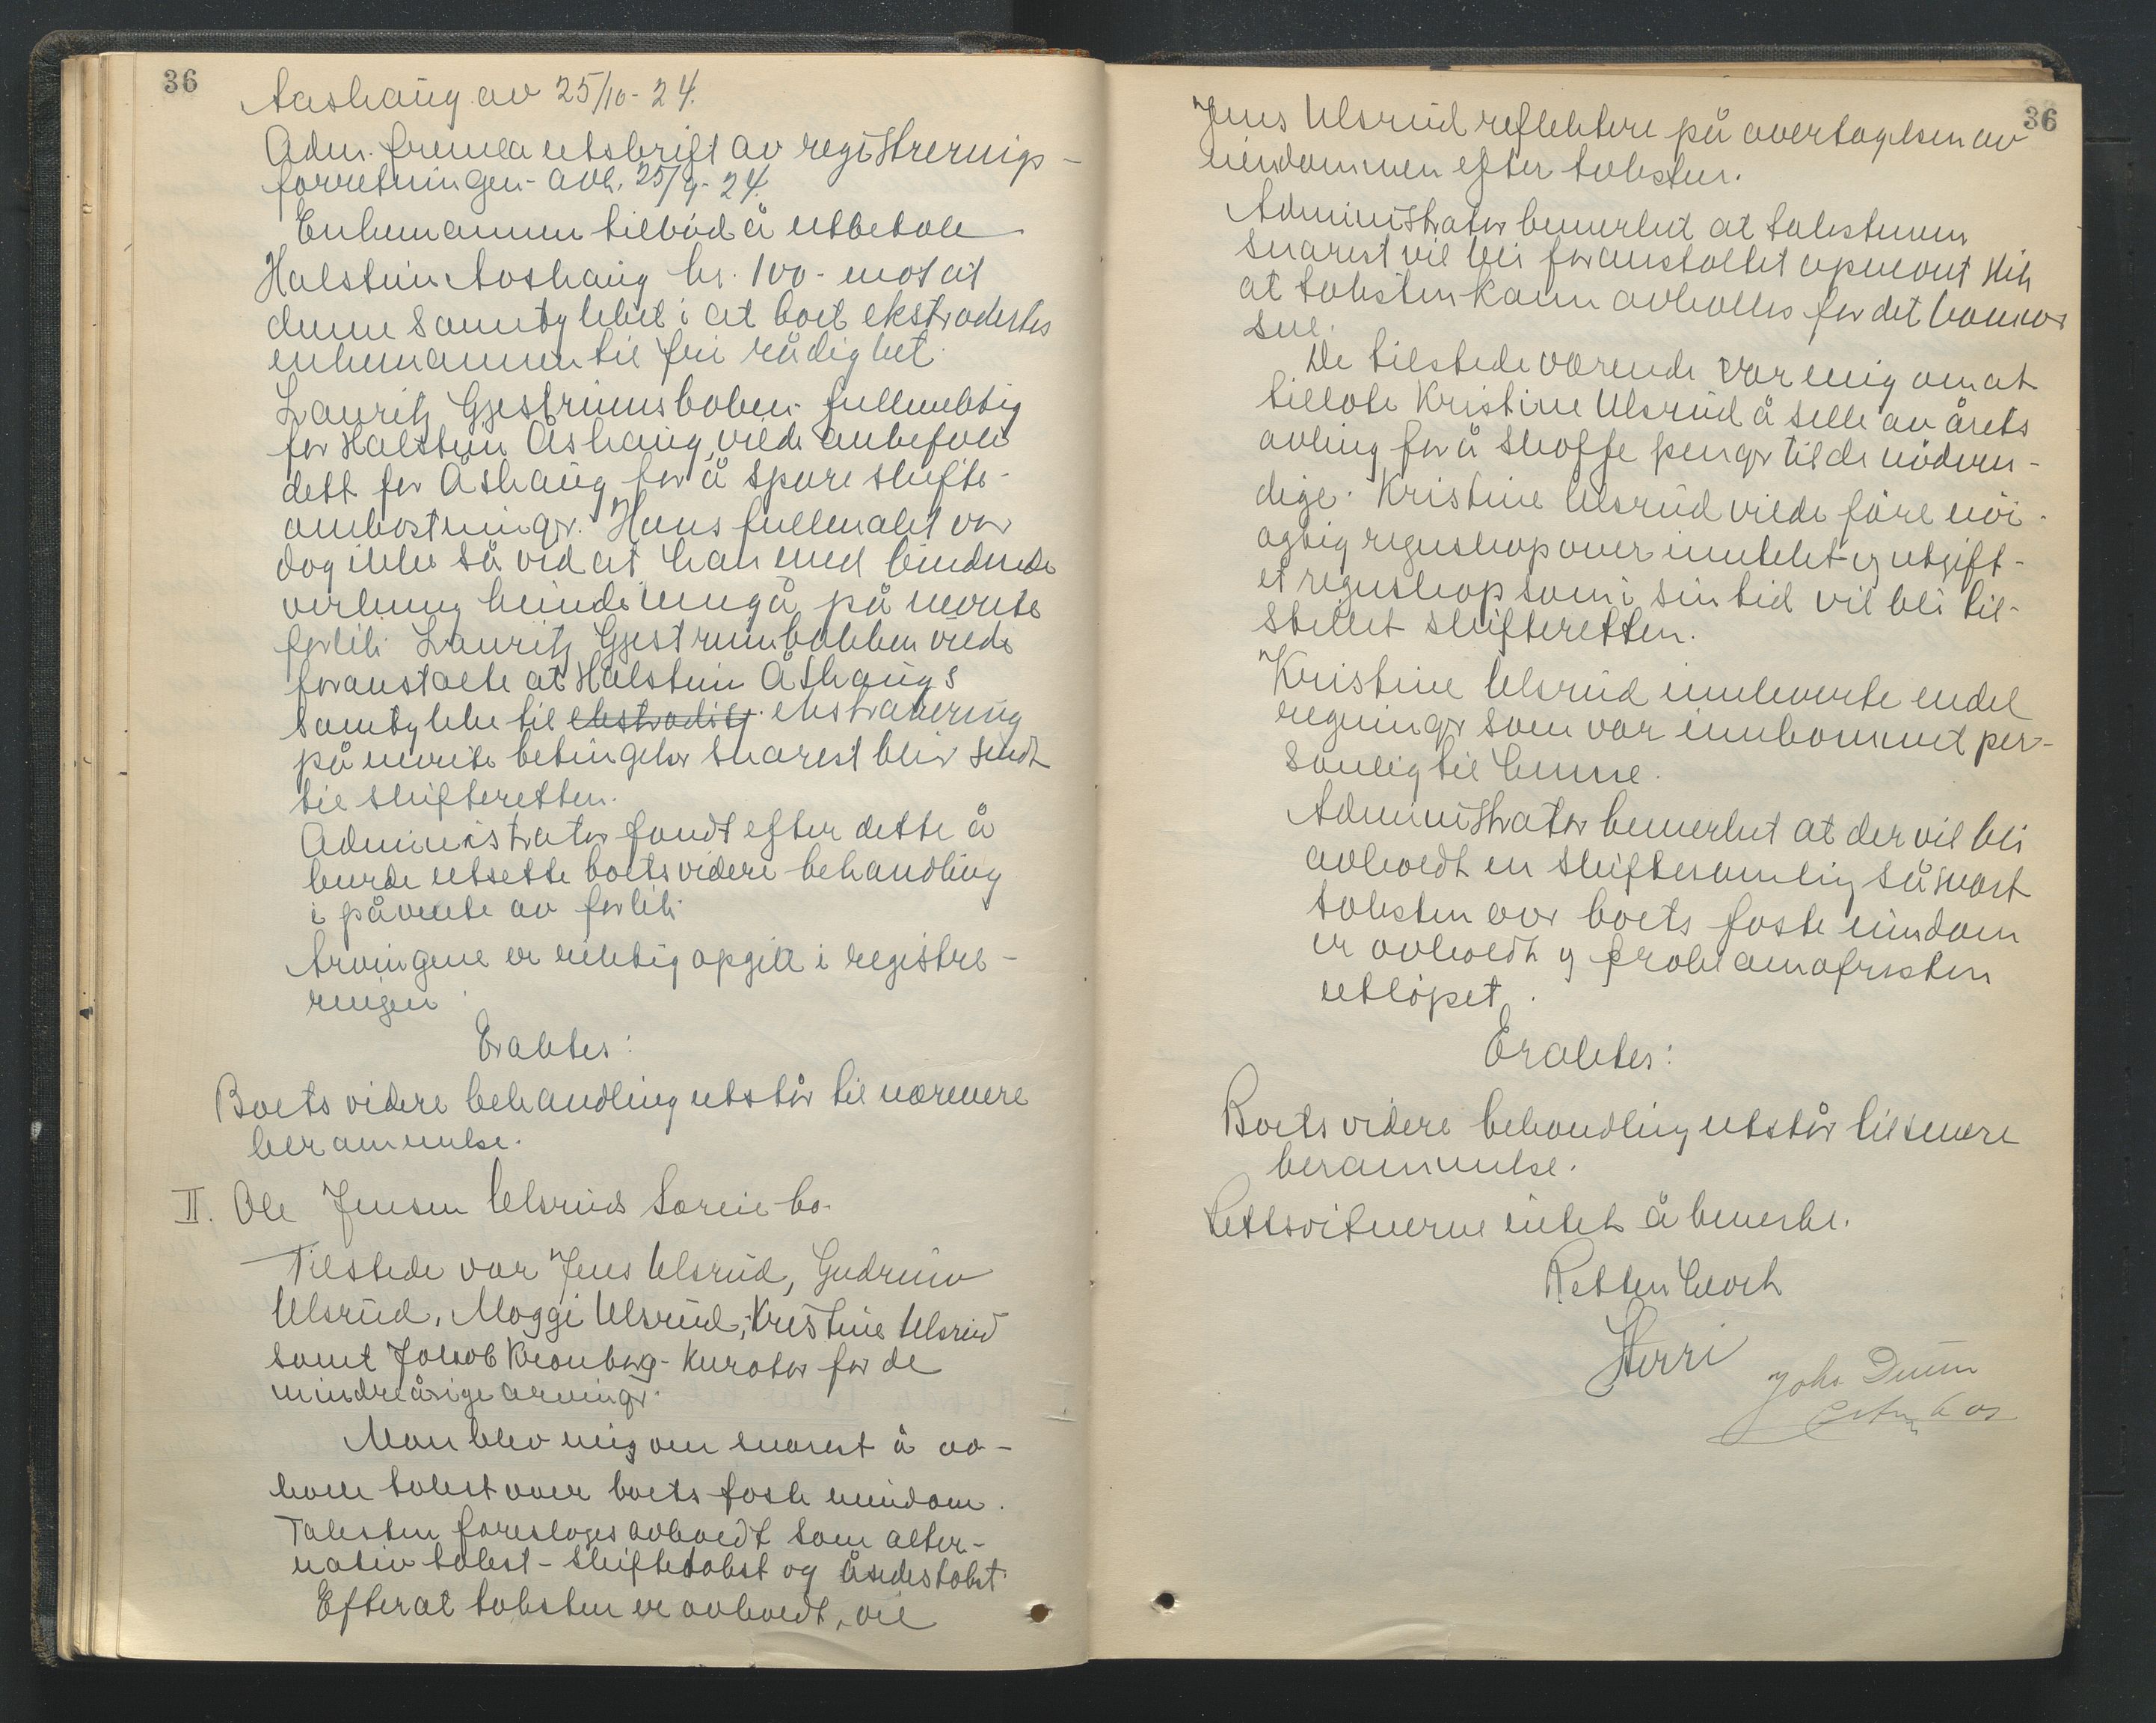 36
Aashaug av 25/10-24.
Adm. fremla utskrift av registrernigs-
forretningen avh. 25/9-24.
Enkemannen tilbød å utbetale
Halstein Aashaug kr. 100- mot at
denne samtykket i at boet ekstradertes
enkemannen til fri rådighet.
Lauritz Gjestrumsbakken fullmektig
for Halstein Åshaug, vilde anbefale
dett for Åshaug for å spare skifte-
omkostninger. Hans fullmakt var
dog ikke så vid at han med bindende
virkning kunde inngå på nevnte
forlik. Lauritz Gjestrumbakken vilde
foranstalte at Halstein Åshaugs
samtykke til ekstradisj. ekstradering
på nevnte betingelser snarest blir sendt
til skifteretten.
Administrator fandt efter dette å
burde utsette boets videre behandling
i påvente av forlik.
Arvingene er riktig opgitt i registre-
ringen.
Eraktes:
Boets videre behandling utstår til nærmere
berammelse.
II. Ole Jensen Ulsruds særeie-bo.
Tilstede var Jens Ulsrud, Gudrun
Ulsrud, Maggi Ulsrud, Kristine Ulsrud
samt Jakob Kronborg - kurator for de
mindreårige arvinger.
Man blev enig om snarest å av-
holde takst over boets faste eiendom.
Taksten foreslåes avholdt som alter-
nativ takst - skiftetakst og åsædestakst.
Efterat taksten er avholdt, vil
36
Jens Ulsrud reflektere på overtagelsen av
eiendommen efter taksten.
Administrator bemerket at takstmenn
snarest vil bli foranstaltet opnevnt slik
at taksten kann avholdes før det kommer
sne.
De tilstedeværende var enig om at
tillate Kristine Ulsrud å selle av årets
avling for å skaffe penger til de nødven-
dige. Kristine Ulsrud vilde føre nøi-
agtig regnskap over inntekt og utgift-
et regnskap som i sin tid vil bli til-
stillet skifteretten.
Kristine Ulsrud innleverte endel
regninger som var innkommet per-
sonlig til henne.
Administrator bemerket at der vil bli
avholdt en skiftesamling så snart
taksten over boets faste eiendom
er avholdt og proklamafristen
utløpet.
Eraktes:
Boets videre behandling utstår til senere
berammelse.
Rettsvitnerne intet å bemerke.
Retten hevet